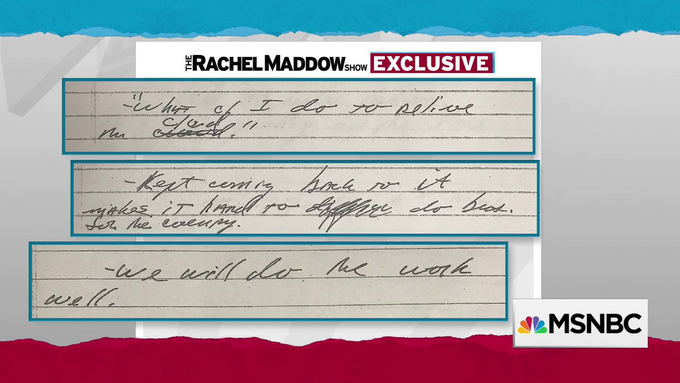 THE RACHEL MADDOW SHOW EXCLUSIVE
-"What I do to relive
the ."
-Kept coming back to it
makes it hard to do bus.
for the country.
-we will do the work
well.
MSNBC